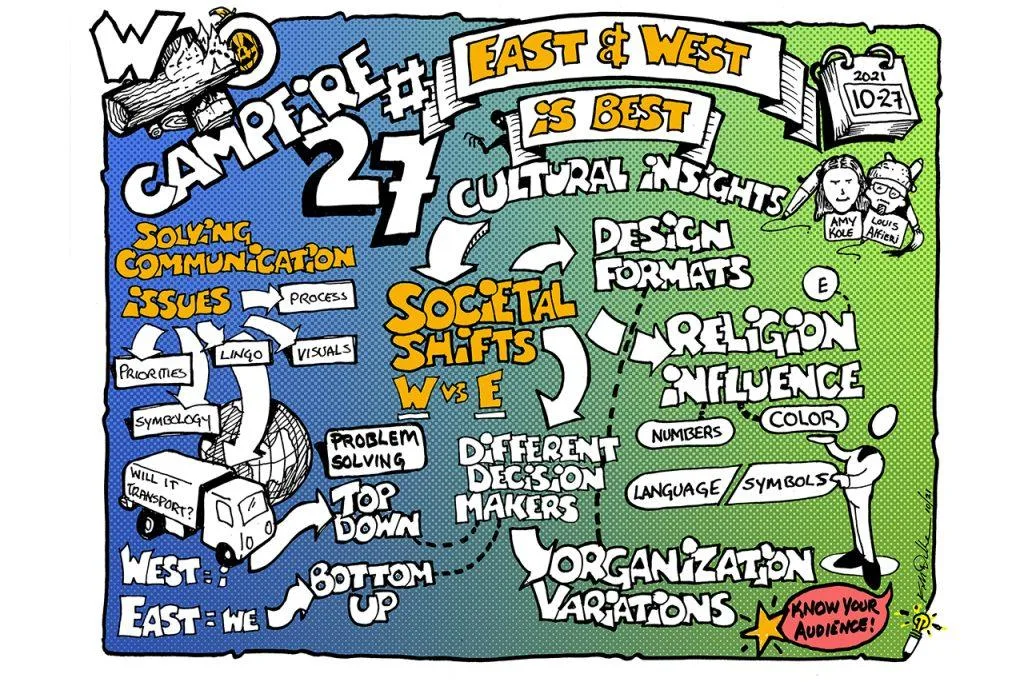 W
CAMPFiRE #
27
EAST & WEST
iS BEST
2021
10-27
CULTURAL iNSiGHTS
AMY
KOLE
LOUIS
ALFiERi
SOLViNG
COMMUNiCATiON
iSSUES
PROCESS
PRIORITIES
LINGO
VISUALS
SYMBOLOGY
WILL IT
TRANSPORT?
SOCiETAL
SHiFTS
W vs E
DESiGN
FORMATS
E
RELiGiON
iNFLUENCE
NUMBERS
COLOR
LANGUAGE / SYMBOLS
PROBLEM
SOLVING
TOP
DOWN
DiFFERENT
DECiSiON
MAKERS
WEST = i
EAST = WE
BOTTOM
UP
ORGANiZATiON
VARiATiONS
KNOW YOUR
AUDIENCE!
10/21